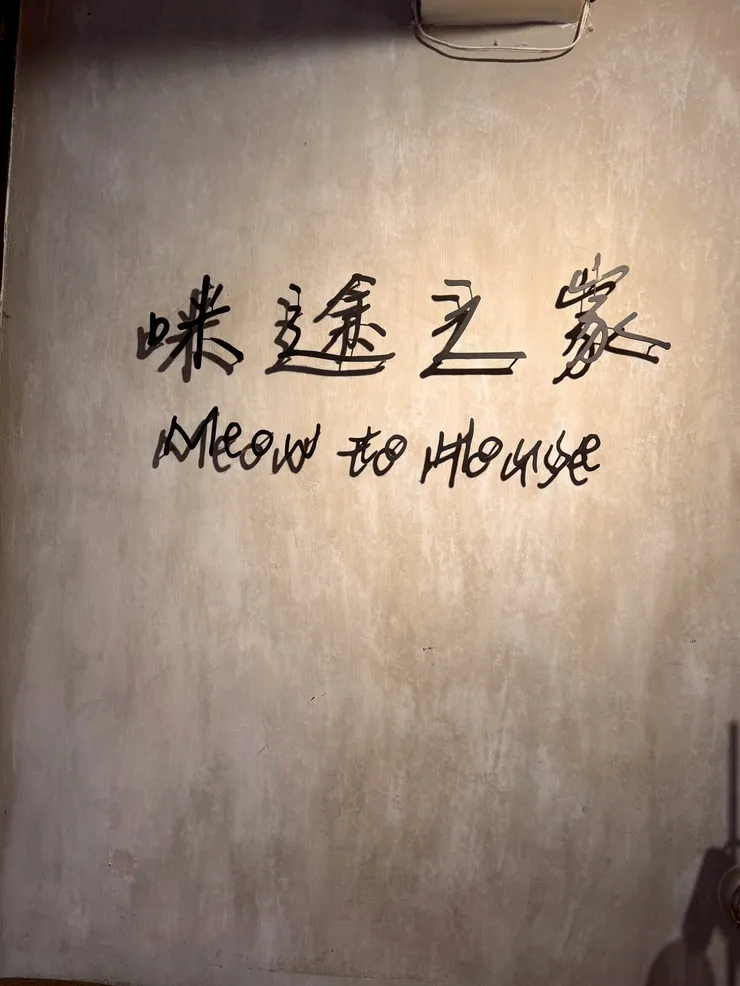 咪途之家
Meow to House